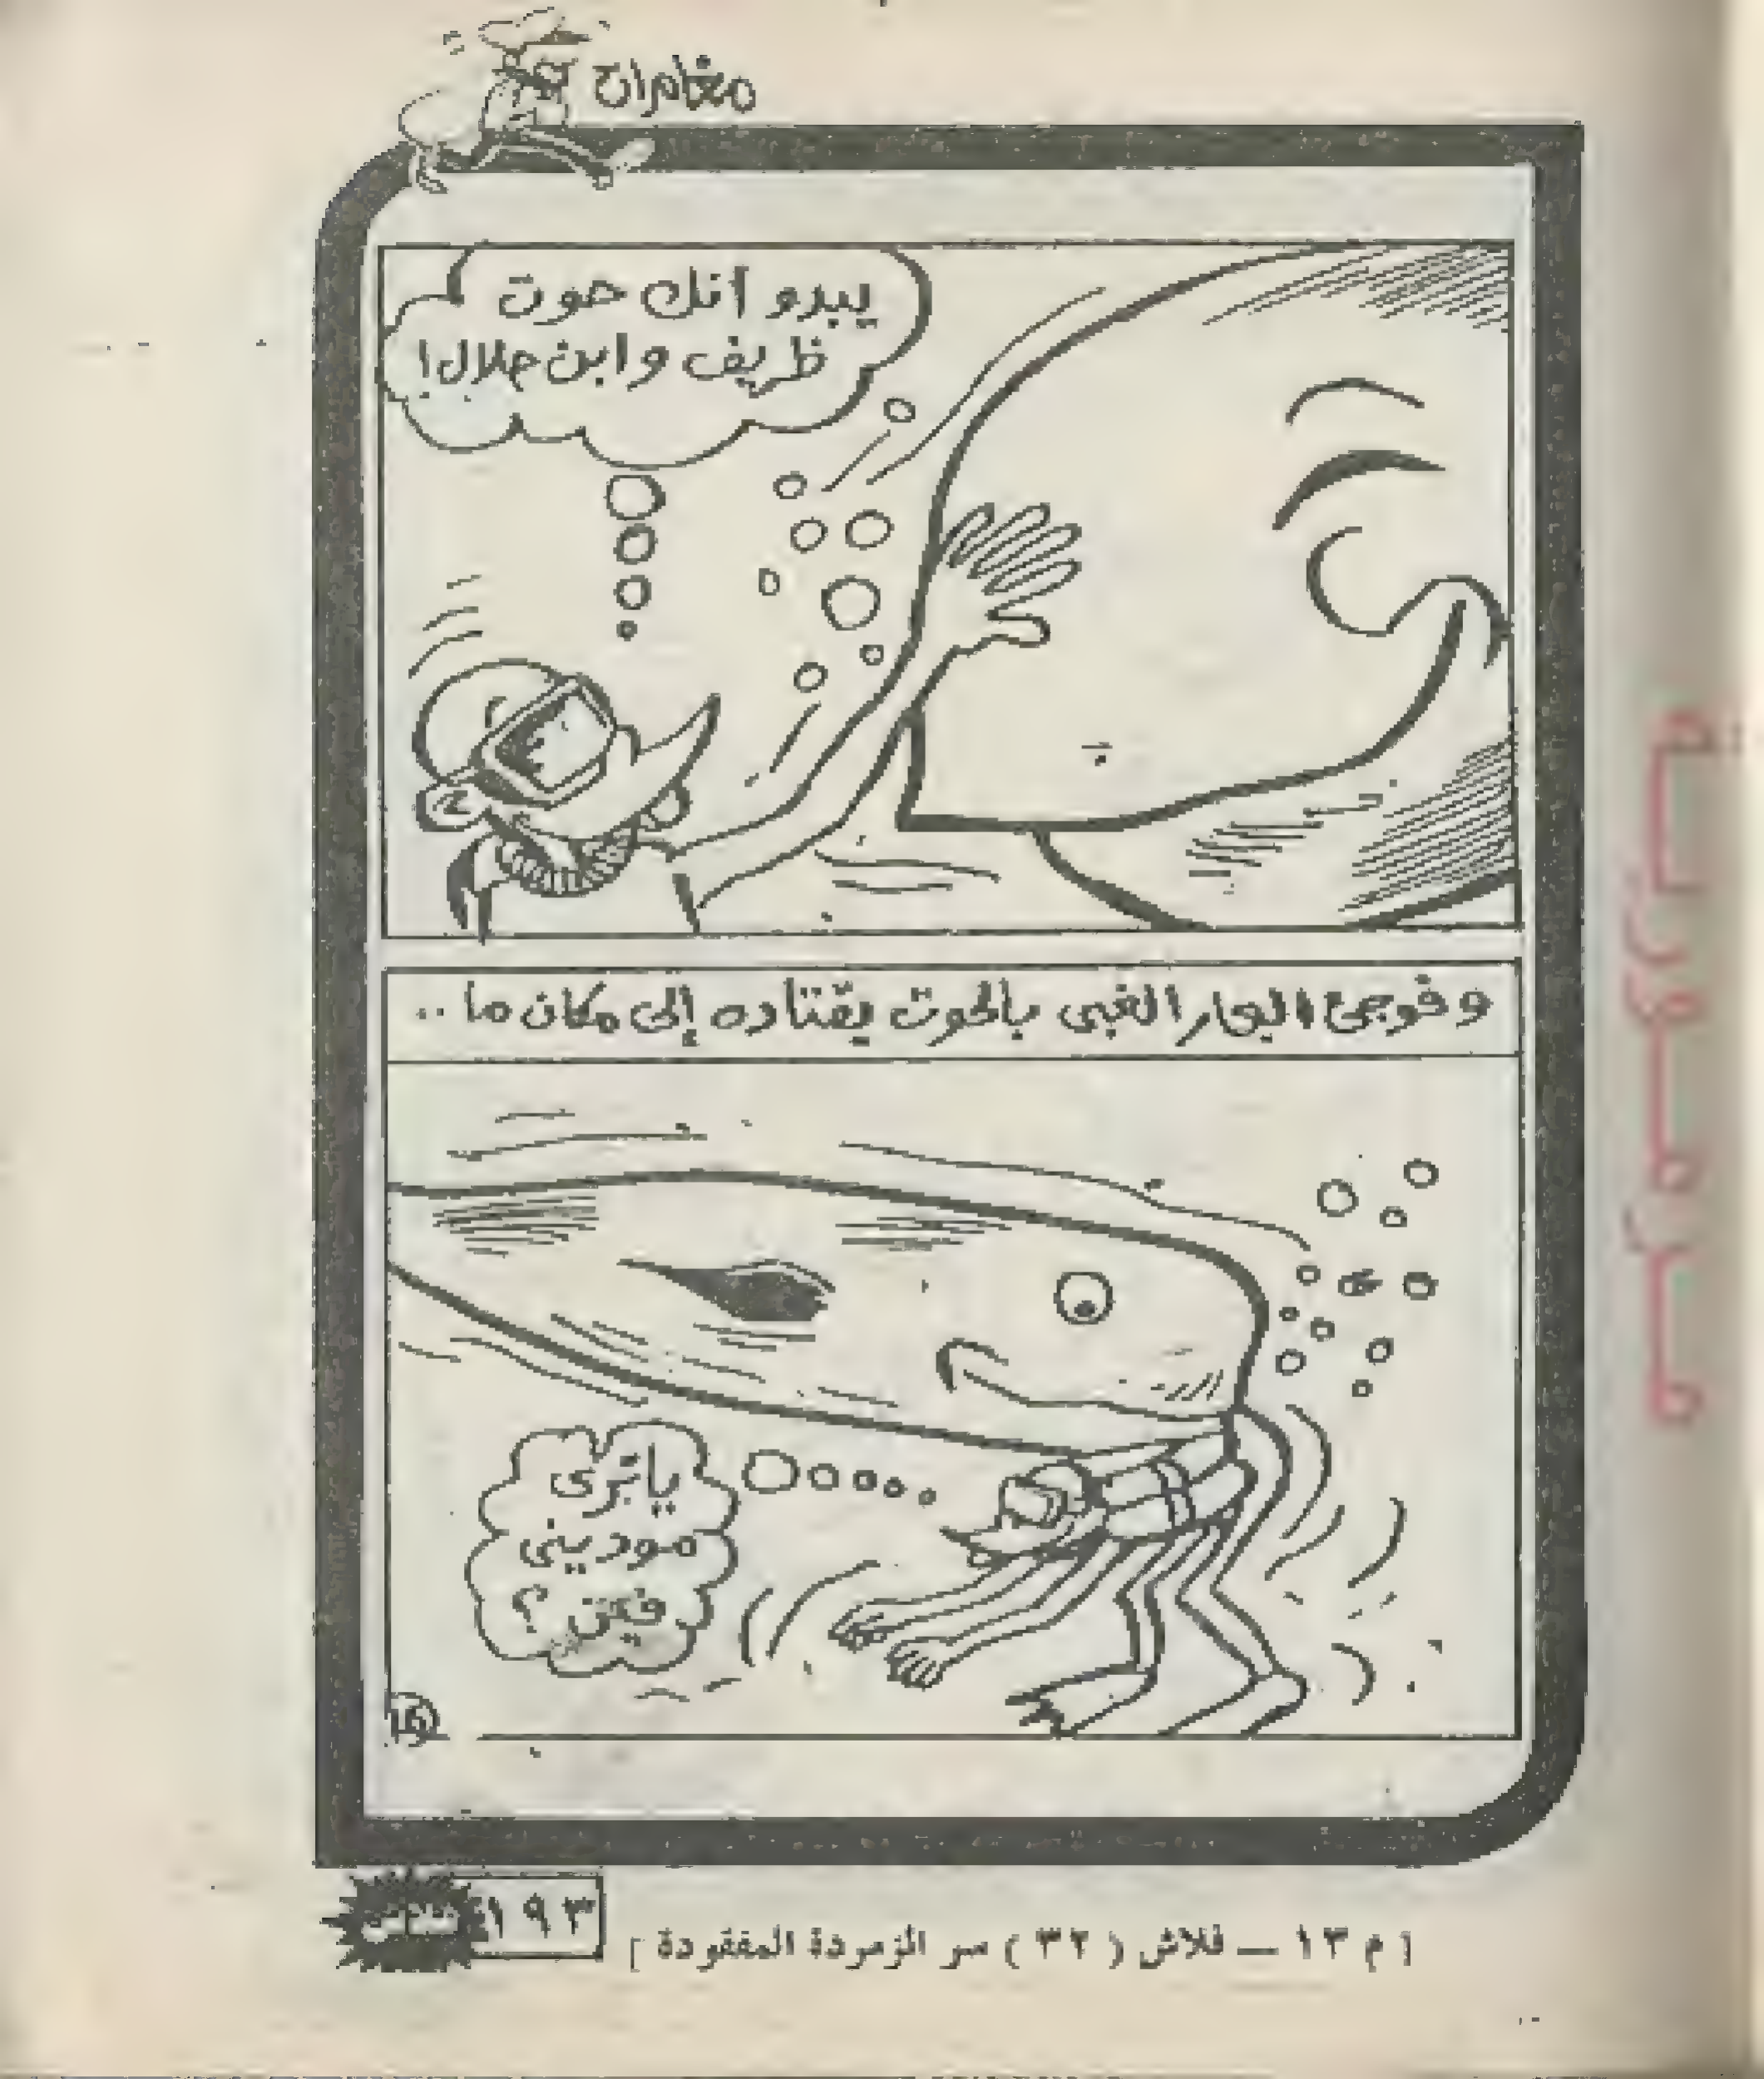 مغامرات
يبدو انك حوت
ظريف وابن حلال!
وفوجئ البحار الغبى بالحوت يقتاده إلى مكان ما ..
ياترى
مودينى
فين ؟
١٩٣
فلاش
[ م ١٣ — فلاش ( ٣٢ ) سر الزمردة المفقودة ]